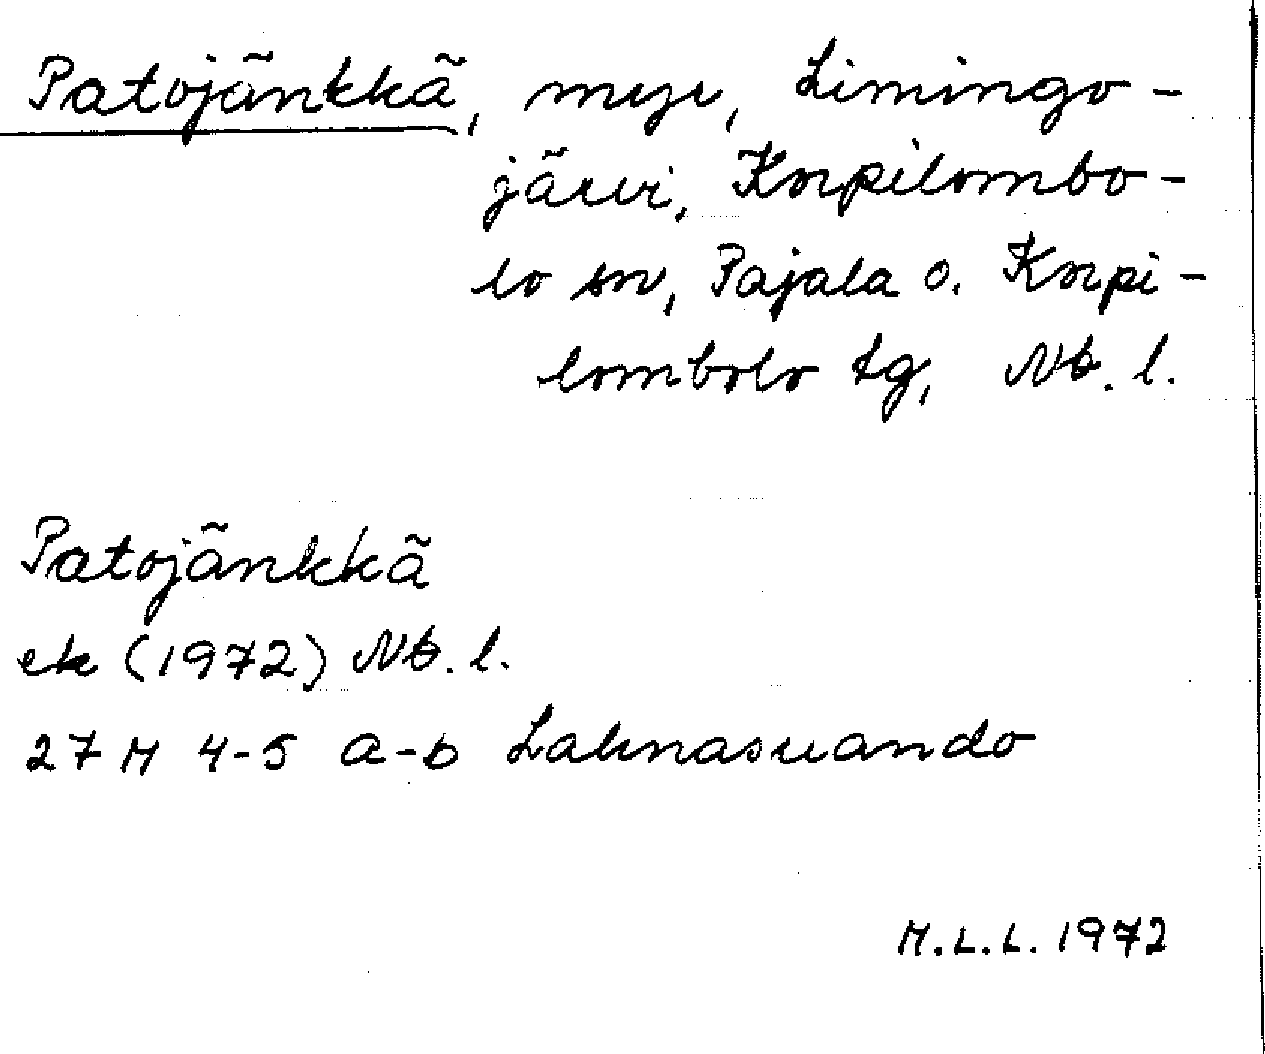 Patojänkkä, myr, Limingo-
järvi, Korpilombo-
lo sn, Pajala o. Korpi-
lombolo tg, Nb. l.
Patojänkkä
ek (1972) Nb. l.
27 M 4-5 a-b Lahnasuando
M.L.L. 1972